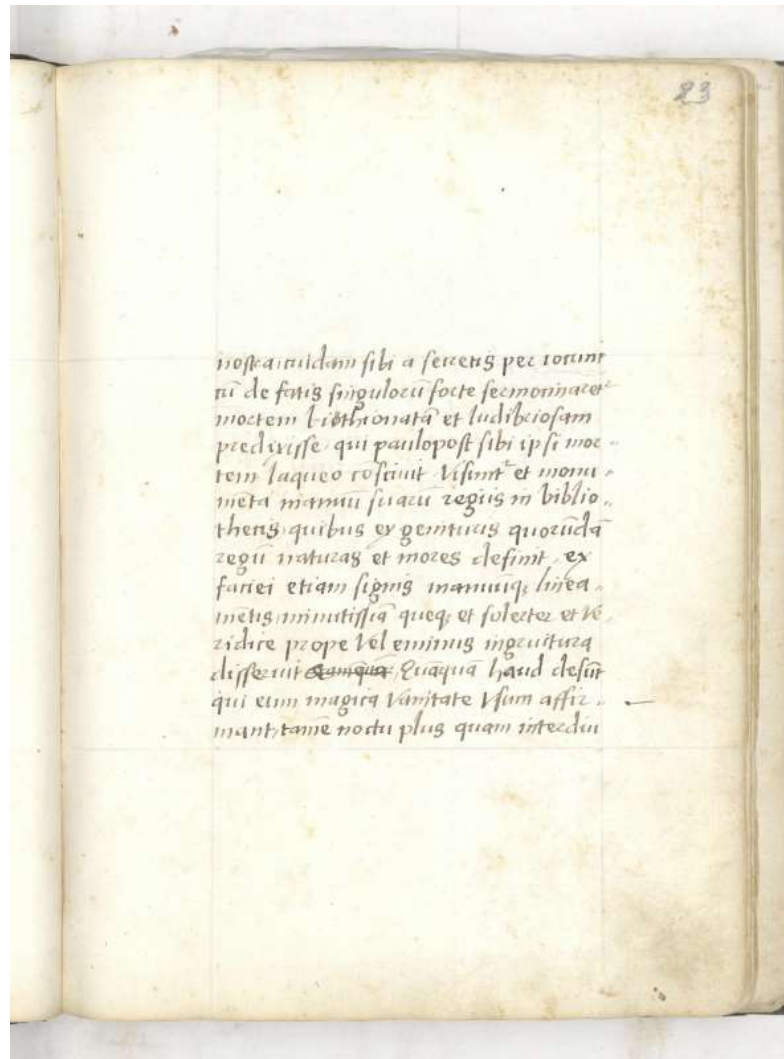 23
nostra cuidam sibi a secretis per iocum
cū de fatis singulorū forte sermocinaret᷑
mortem biothionatā et ludibriosam
predixisse qui paulopost sibi ipsi mor
tem laqueo cōscivit Visunt᷑ et monu
mēta manuū suarū regiis in biblio
thecis, quibus ex genituris quorūdā
regū naturas et mores definit, ex
faciei etiam signis manuūq; linea
mētis, minutissīa queq; et solerter et ve
ridice prope vel eminus ingruitura
disseruit Quāquā haud desūt
qui eum magica vanitate usum affir
mant, tamē noctu plus quam interdiu